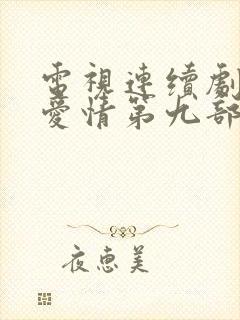 電視連續劇
愛情第九部
夜惠美